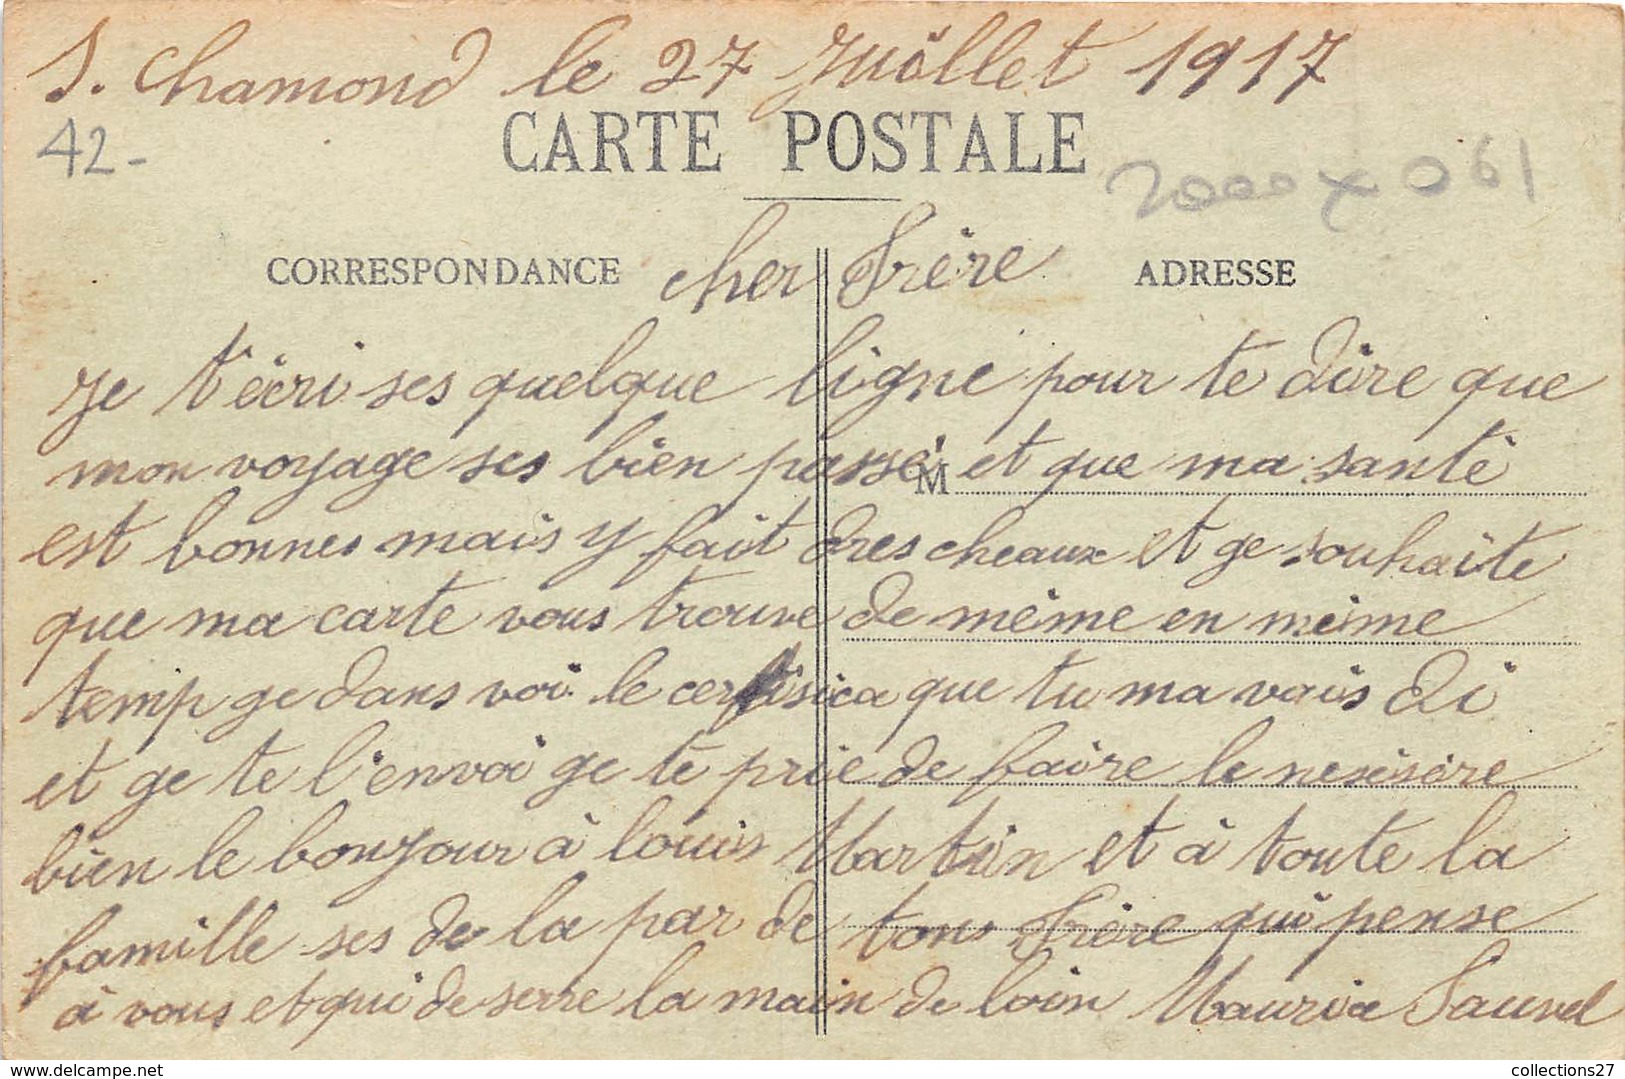 S. Chamond le 27 Juillet 1917
42-
CARTE POSTALE
2000 x 061
CORRESPONDANCE
cher Frère
ADRESSE
Je t'écri ses quelque ligne pour te dire que
mon voyage ses bien passé et que ma santé
M
est bonnes mais y fait dres cheaux et ge souhaite
que ma carte vous trouve de même en même
temp ge dans voi le certisica que tu ma vais di
et ge te l'envoi ge te prie de faire le nesésère
bien le bonjour à louis Martin et à toute la
famille ses de la par de tons Frère qui pense
à vous et qui de serre la main de loin Maurice Sauvel
collections27